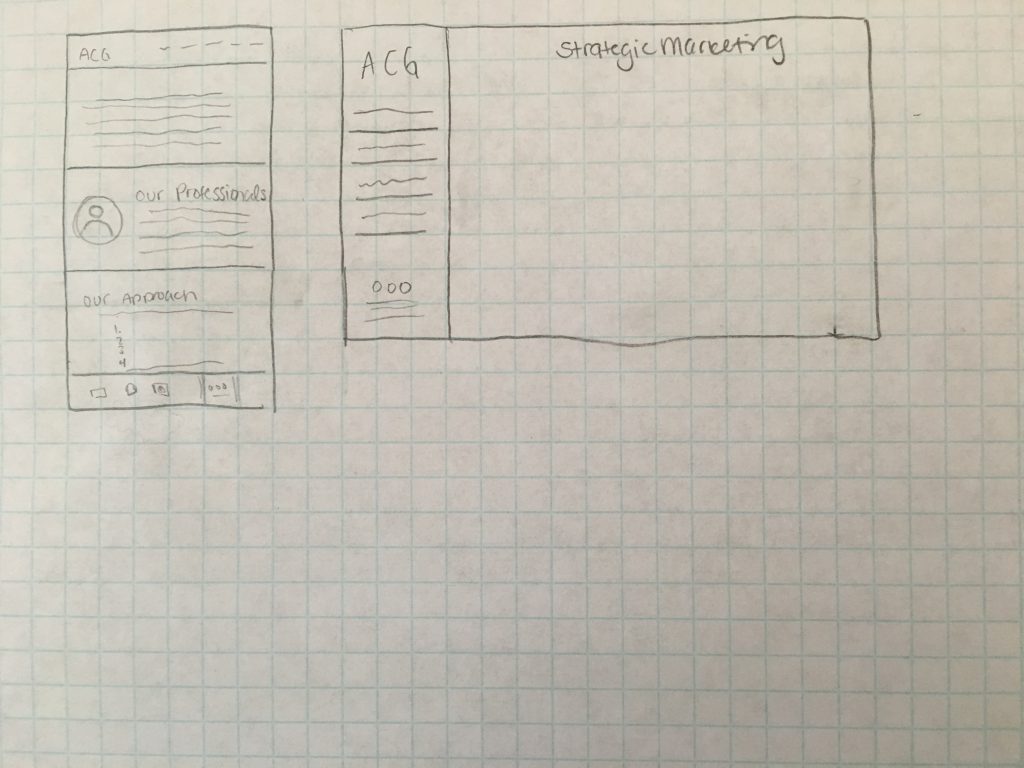 ACG
our Professionals
our Approach
1.
2
3
4
ACG
000
Strategic Marketing